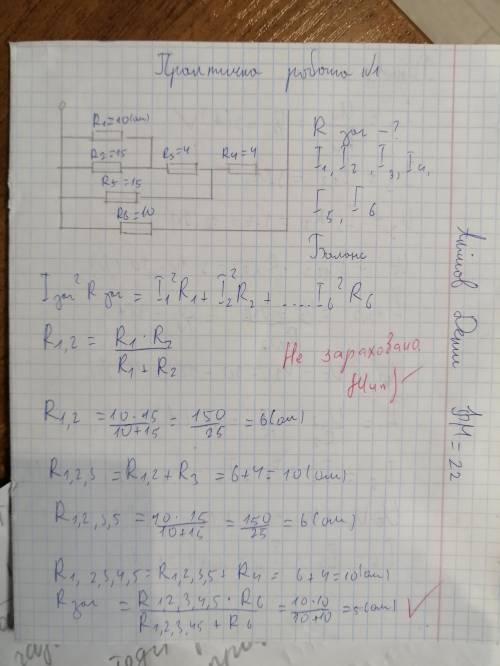 Практична робота №1
R1=10(ом)
R2=15
R3=4
R4=4
R5=15
R6=10
R заг - ?
I1, I2, I3, I4,
I5, I6
Баланс
Денис
ФМ-22
Iзаг² R заг = I1²R1 + I2²R2 + ..... I6²R6
R1,2 = R1 · R2 / R1 + R2
Не зараховано
R1,2 = 10·15 / 10+15 = 150 / 25 = 6(ом)
R1,2,3 = R1,2 + R3 = 6+4 = 10(ом)
R1,2,3,5 = 10·15 / 10+15 = 150 / 25 = 6(ом)
R1,2,3,4,5 = R1,2,3,5 + R4 = 6+4=10(ом)
R заг = R 12,3,4,5 · R6 / R1,2,3,45 + R6 = 10·10 / 10+10 = 5(ом)